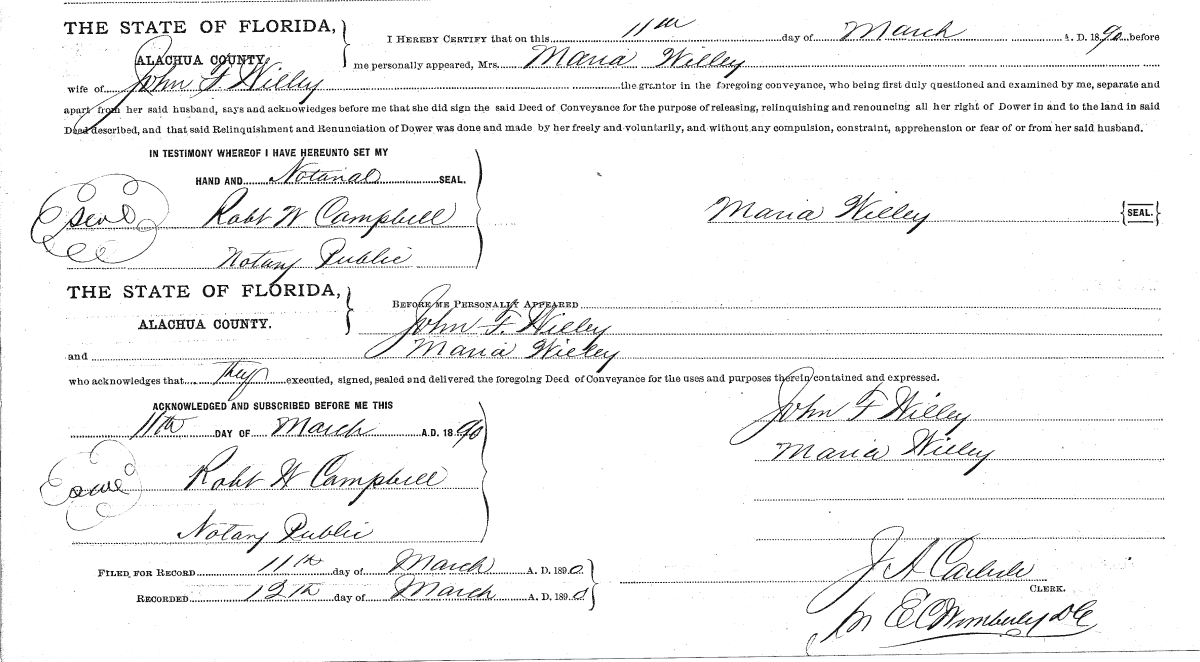 THE STATE OF FLORIDA,
ALACHUA COUNTY.
I HEREBY CERTIFY that on this 11th day of March A. D. 1890 before
me personally appeared, Mrs. Maria Willey
wife of John F. Willey the grantor in the foregoing conveyance, who being first duly questioned and examined by me, separate and
apart from her said husband, says and acknowledges before me that she did sign the said Deed of Conveyance for the purpose of releasing, relinquishing and renouncing all her right of Dower in and to the land in said
Deed described, and that said Relinquishment and Renunciation of Dower was done and made by her freely and voluntarily, and without any compulsion, constraint, apprehension or fear of or from her said husband.
IN TESTIMONY WHEREOF I HAVE HEREUNTO SET MY
HAND AND Notarial SEAL.
Seal Robt W Campbell
Notary Public
Maria Willey {SEAL.}
THE STATE OF FLORIDA,
ALACHUA COUNTY.
BEFORE ME PERSONALLY APPEARED
John F. Willey
and Maria Willey
who acknowledges that they executed, signed, sealed and delivered the foregoing Deed of Conveyance for the uses and purposes therein contained and expressed.
ACKNOWLEDGED AND SUBSCRIBED BEFORE ME THIS
11th DAY OF March A.D. 1890
Seal Robt W Campbell
Notary Public
John F Willey
Maria Willey
FILED FOR RECORD 11th day of March A. D. 1890
RECORDED 12th day of March A. D. 1890
J A Carlisle
CLERK.
E C Wimberly D C